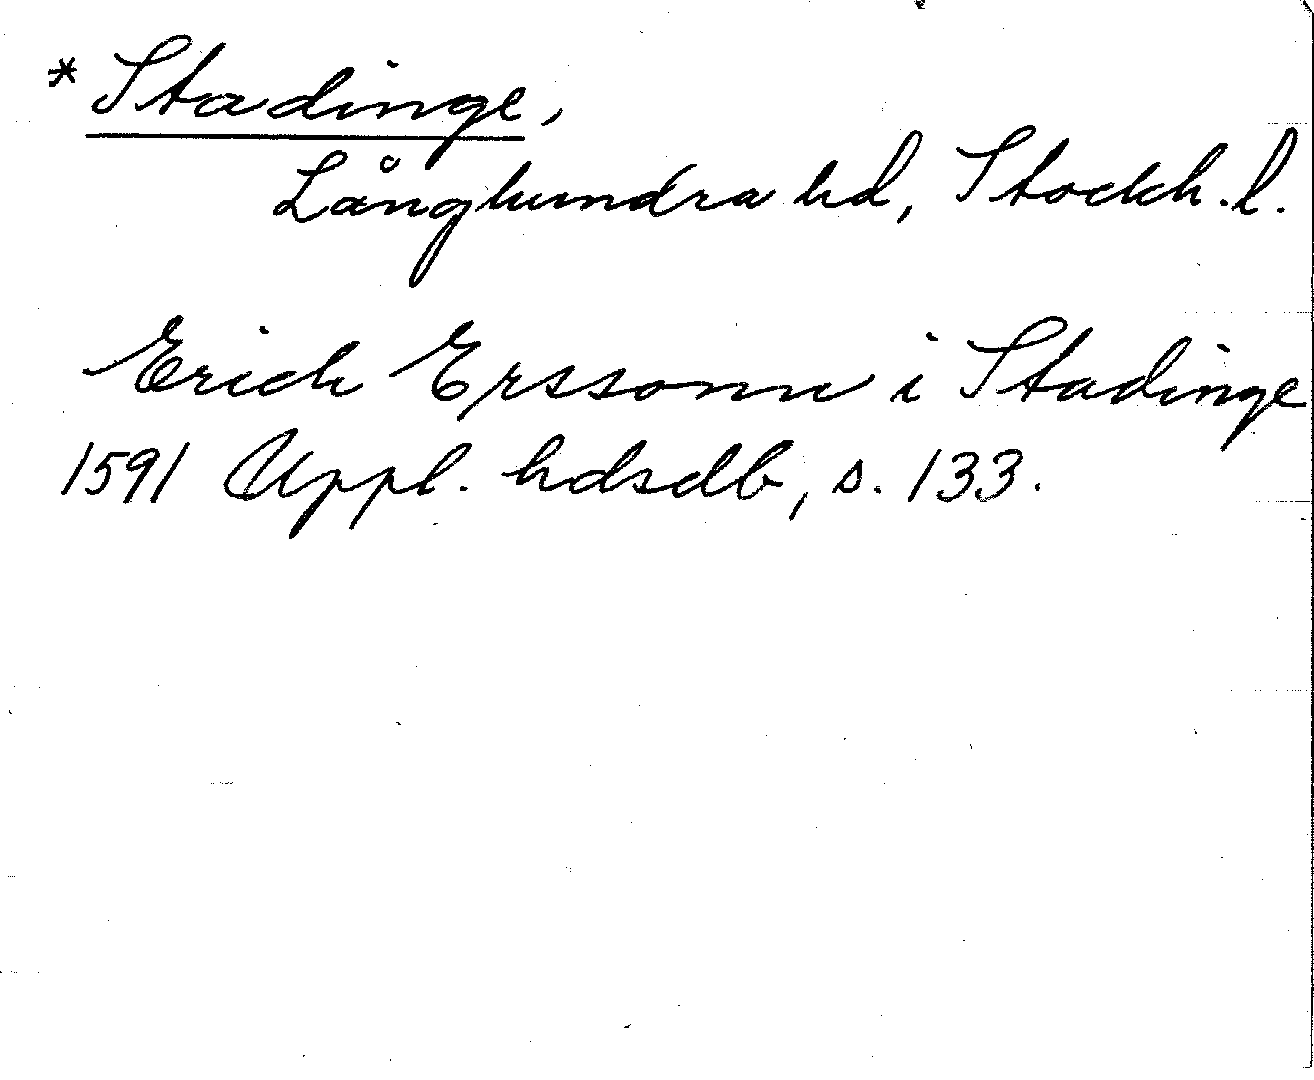 * Stadinge,
Långhundra hd, Stockh. l.
Erich Erssonn i Stadinge
1591 Uppl. hdsdb, s. 133.